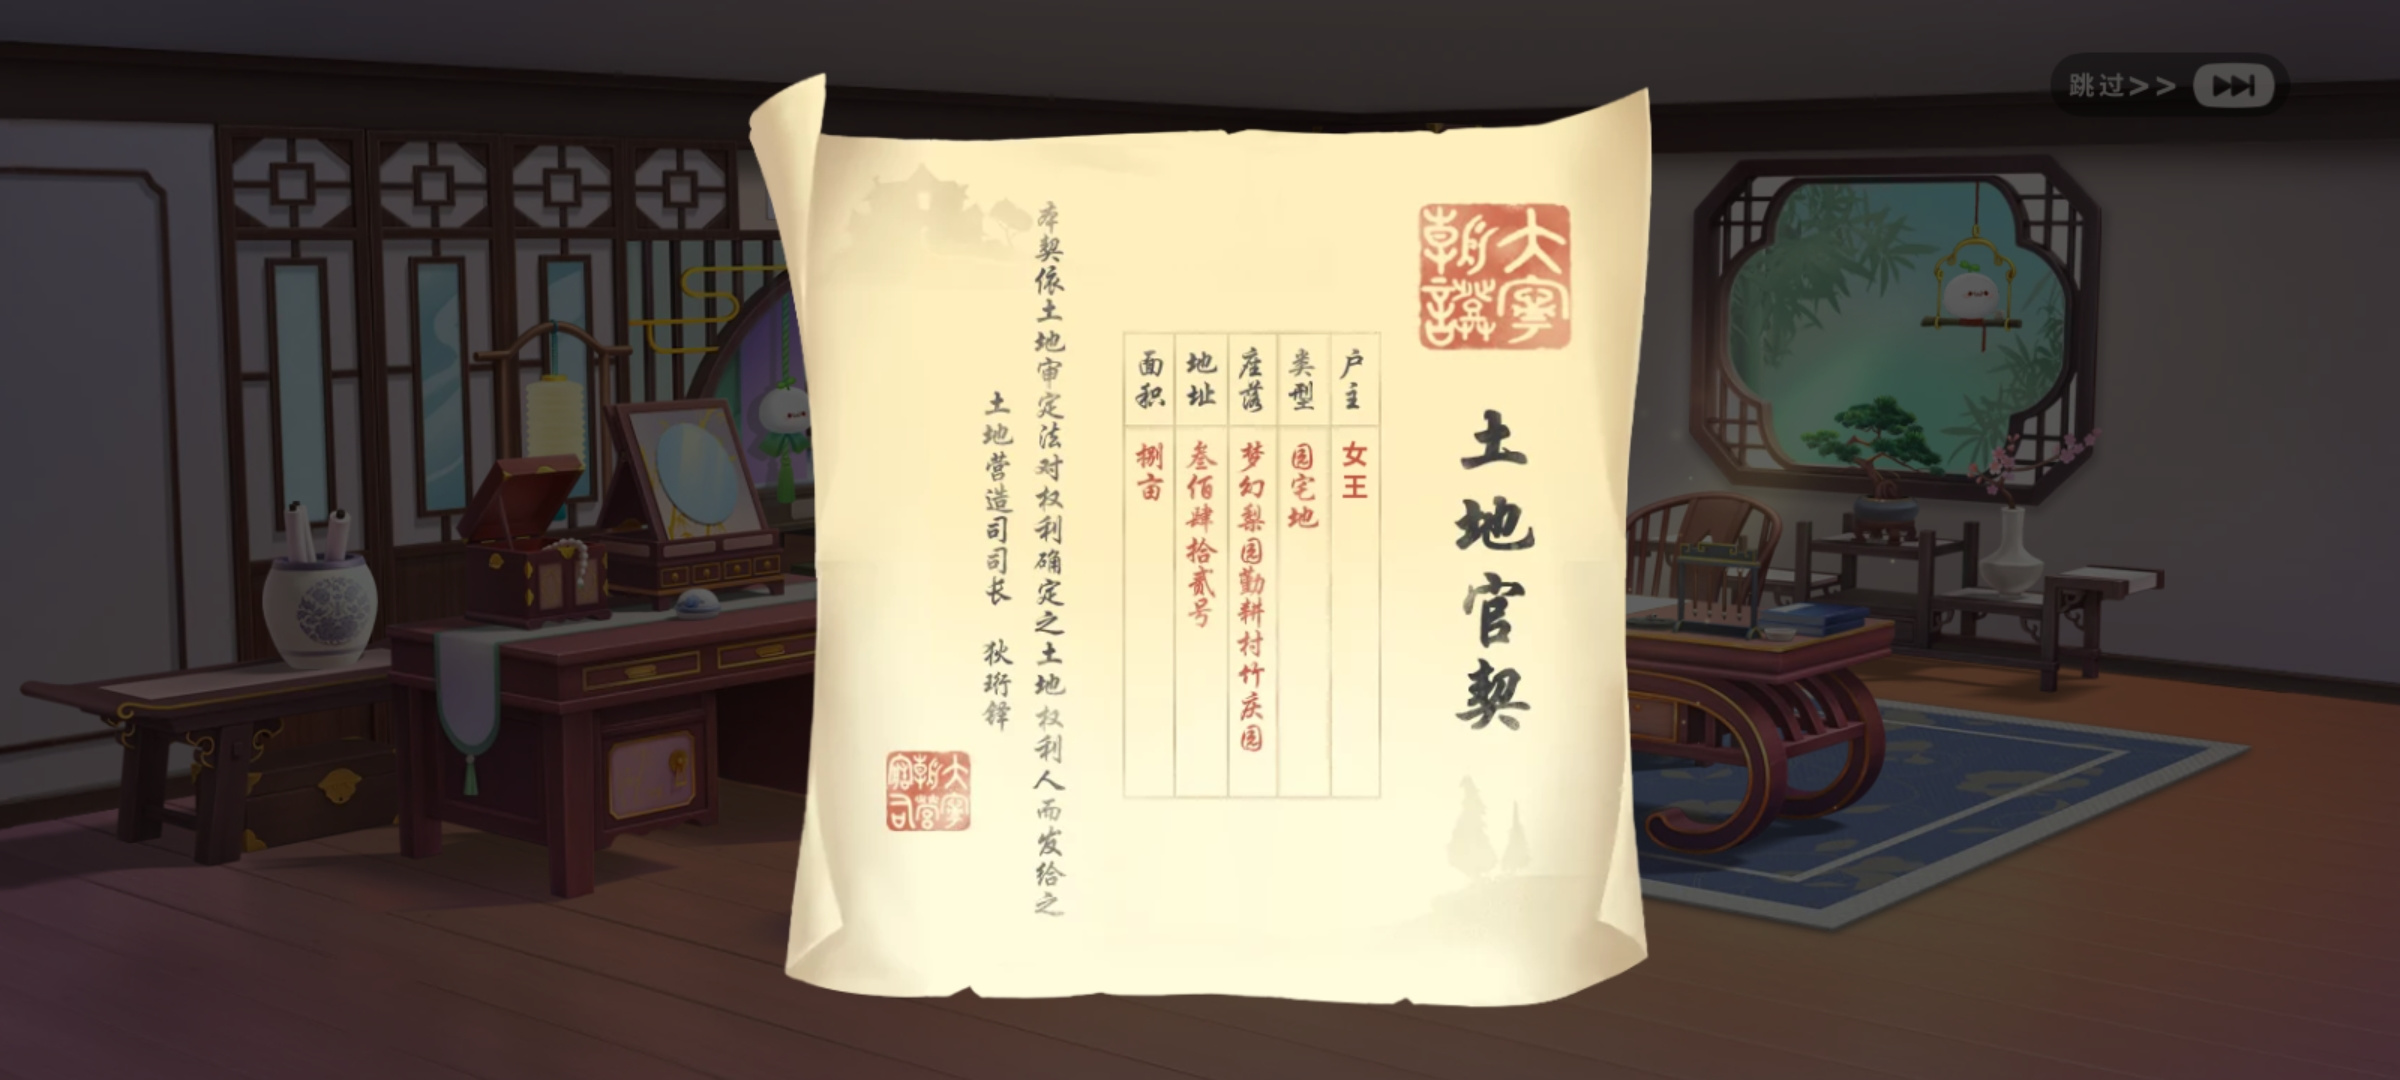 跳过>>
大宁
朝证
土地官契
户主 女王
类型 园宅地
座落 梦幻梨园勤耕村竹庆园
地址 叁佰肆拾贰号
面积 捌亩
本契依土地审定法对权利确定之土地权利人而发给之
土地营造司司长 狄珩铎